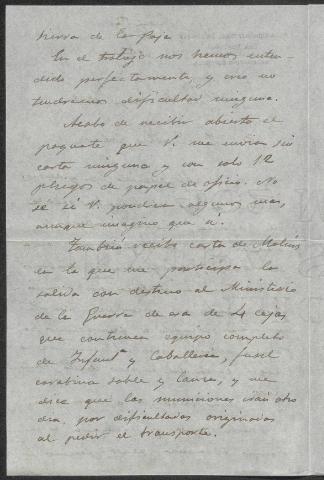 hierra de la Caja.
En el trabajo nos hemos enten-
dido perfectamente, y creo no
tendremos dificultad ninguna.
Acabo de recibir abierto el
paquete que V. me envía sin
carta ninguna y con solo 12
pliegos de papel de oficio. No
sé si V. pondría algunos más,
aunque imagino que sí.
También recibo carta de Molins
en la que me participa la
salida con destino al Ministerio
de la Guerra de esa de 4 cajas
que contienen equipo completo
de Infantª y Caballería, fusil
carabina sable y lanza, y me
dice que las municiones irán otro
día, por dificultades originadas
al pedir el transporte.